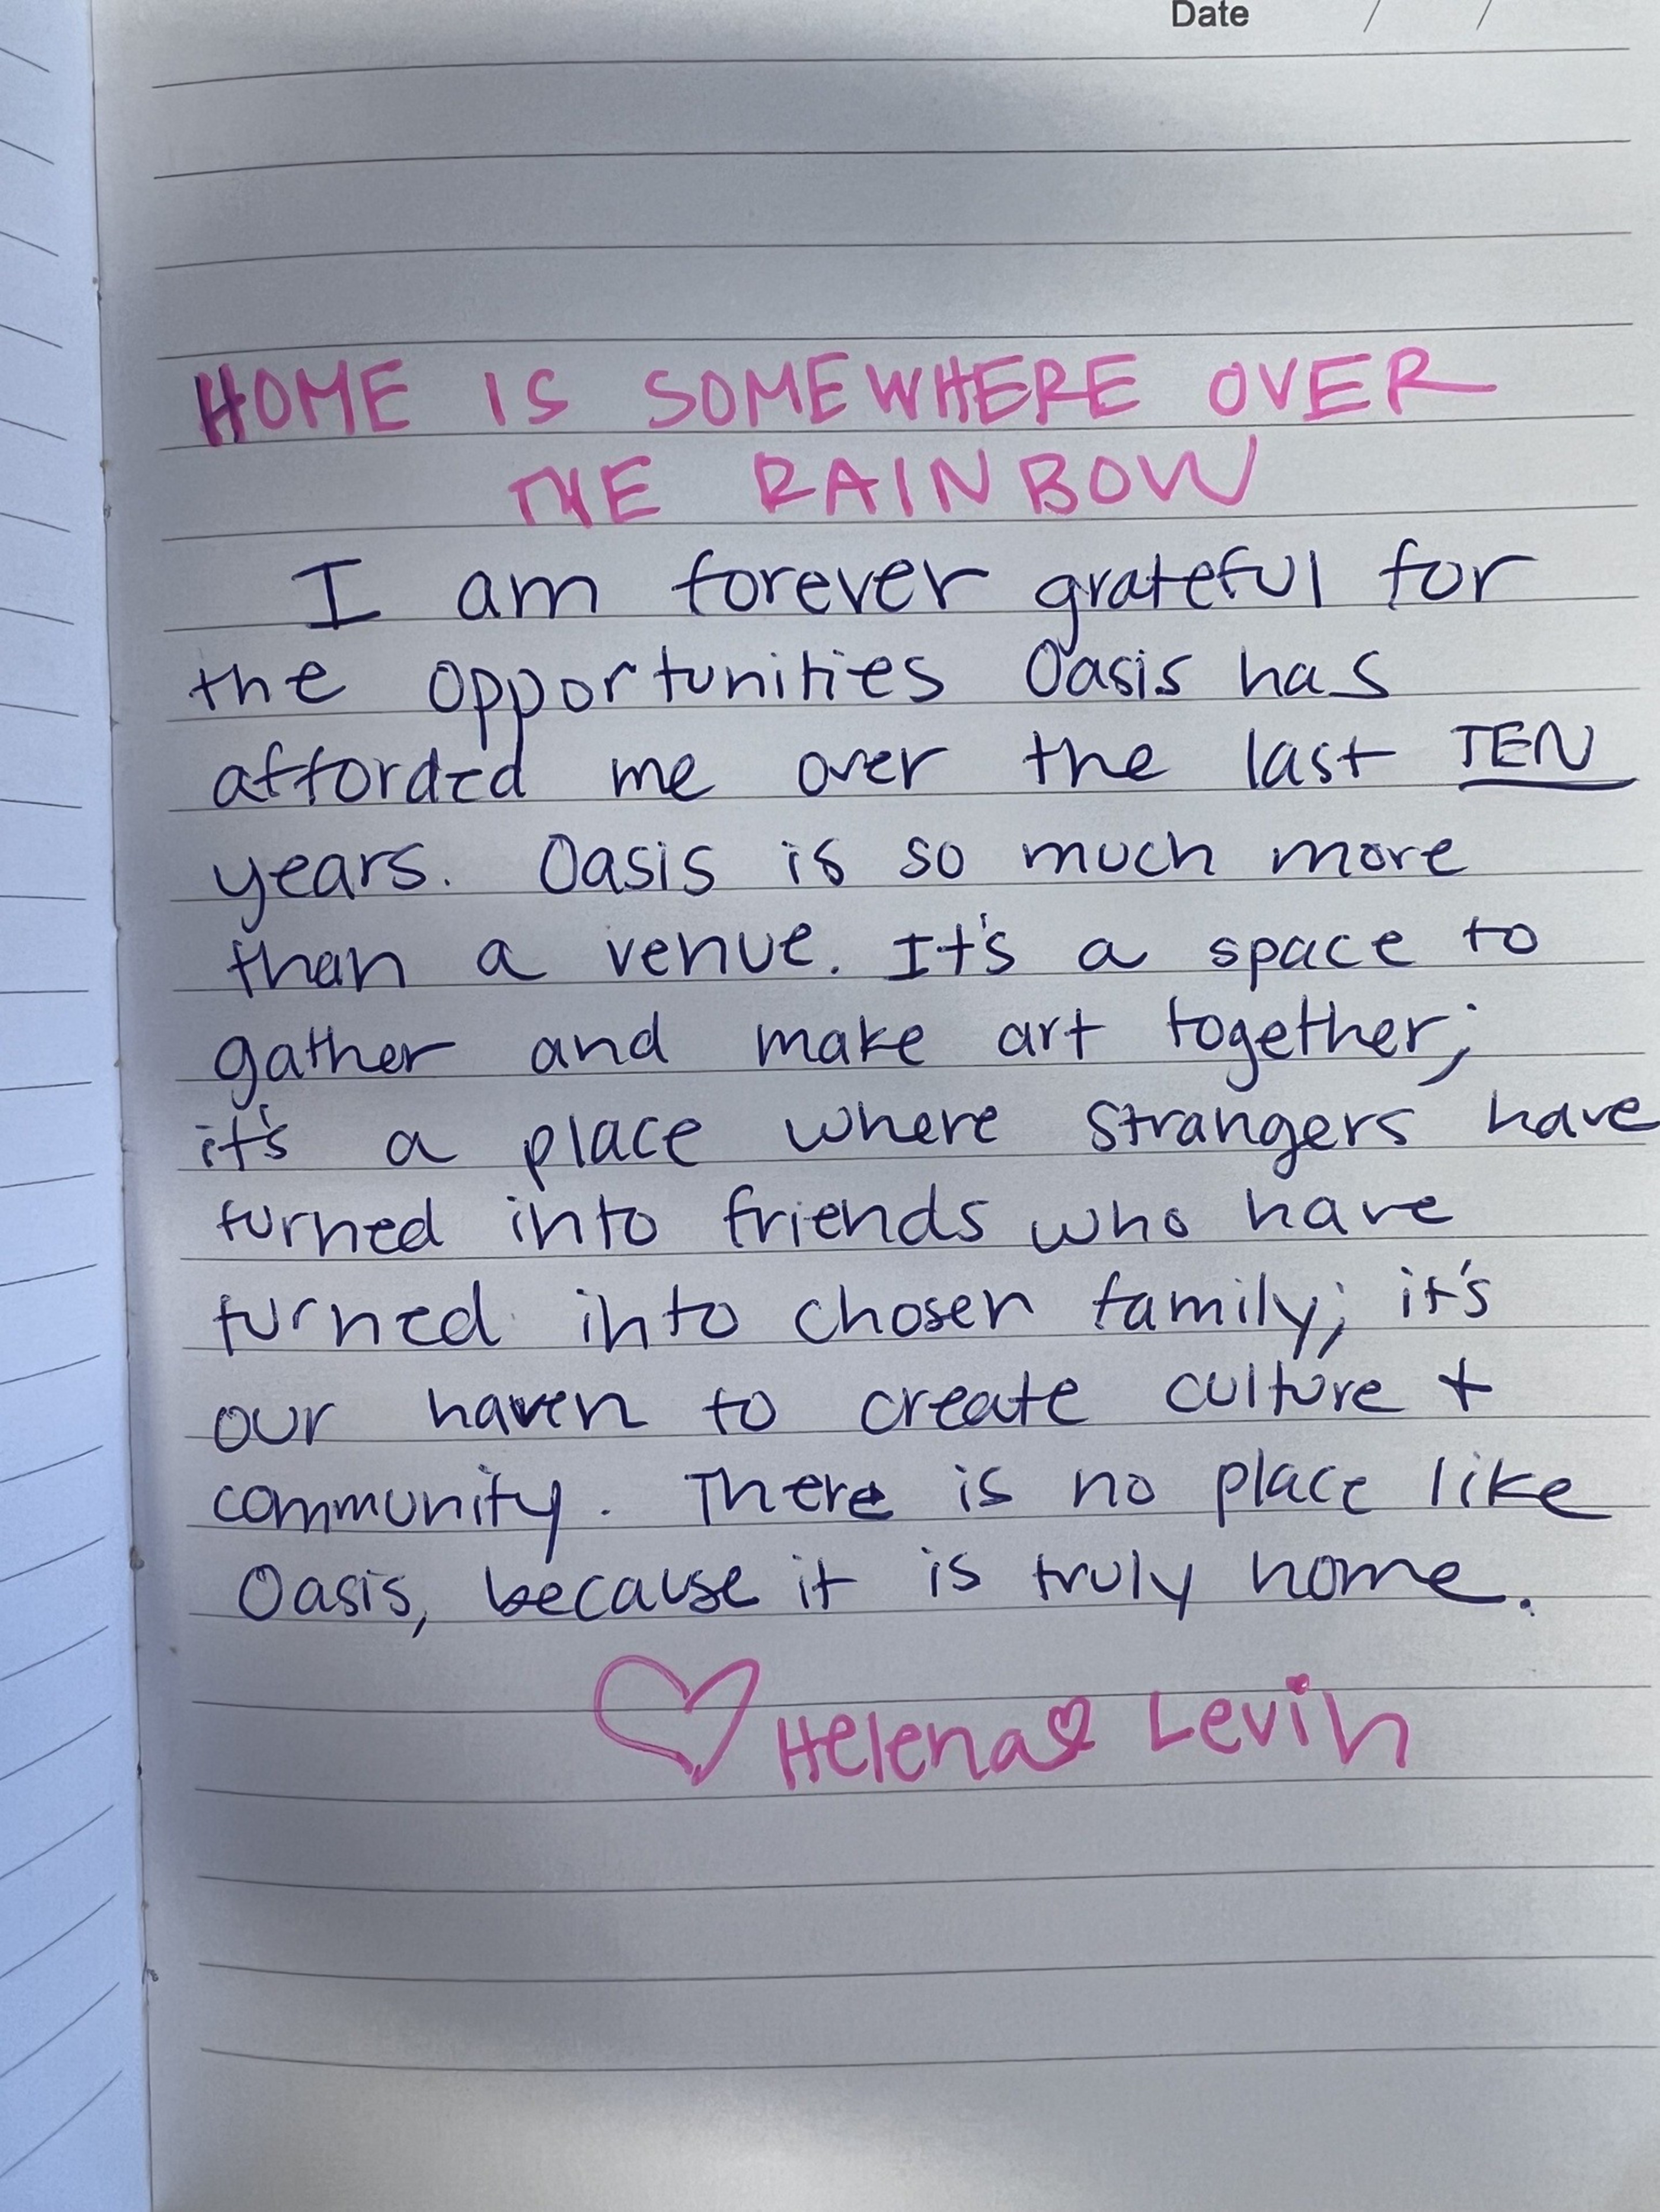 Date / /
HOME IS SOMEWHERE OVER
THE RAINBOW
I am forever grateful for
the opportunities Oasis has
afforded me over the last TEN
years. Oasis is so much more
than a venue. It's a space to
gather and make art together;
it's a place where strangers have
turned into friends who have
turned into chosen family; it's
our haven to create culture +
community. There is no place like
Oasis, because it is truly home.
♡ Helena Levin